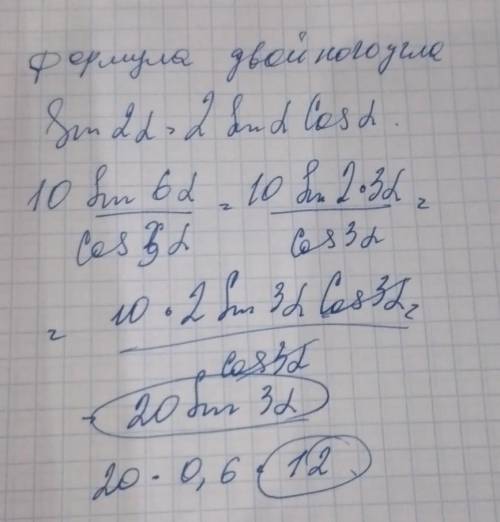 Формула двойного угла
Sin 2α = 2 Sin α Cos α.
10 Sin 6α / cos 3α = 10 Sin 2·3α / cos 3α =
= 10 · 2 Sin 3α Cos 3α / cos 3α =
= 20 Sin 3α
20 · 0,6 = 12